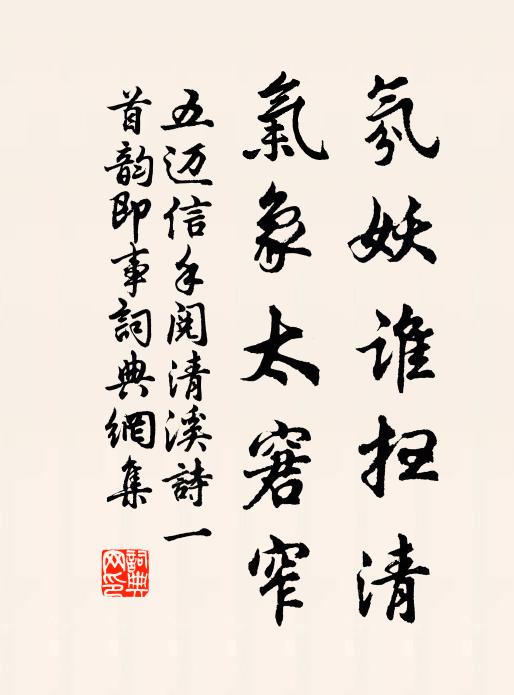 氛妖谁扫清
氣象太窘窄
五迈信手阅清溪詩一
首韵即事詞典網集
詞典网印